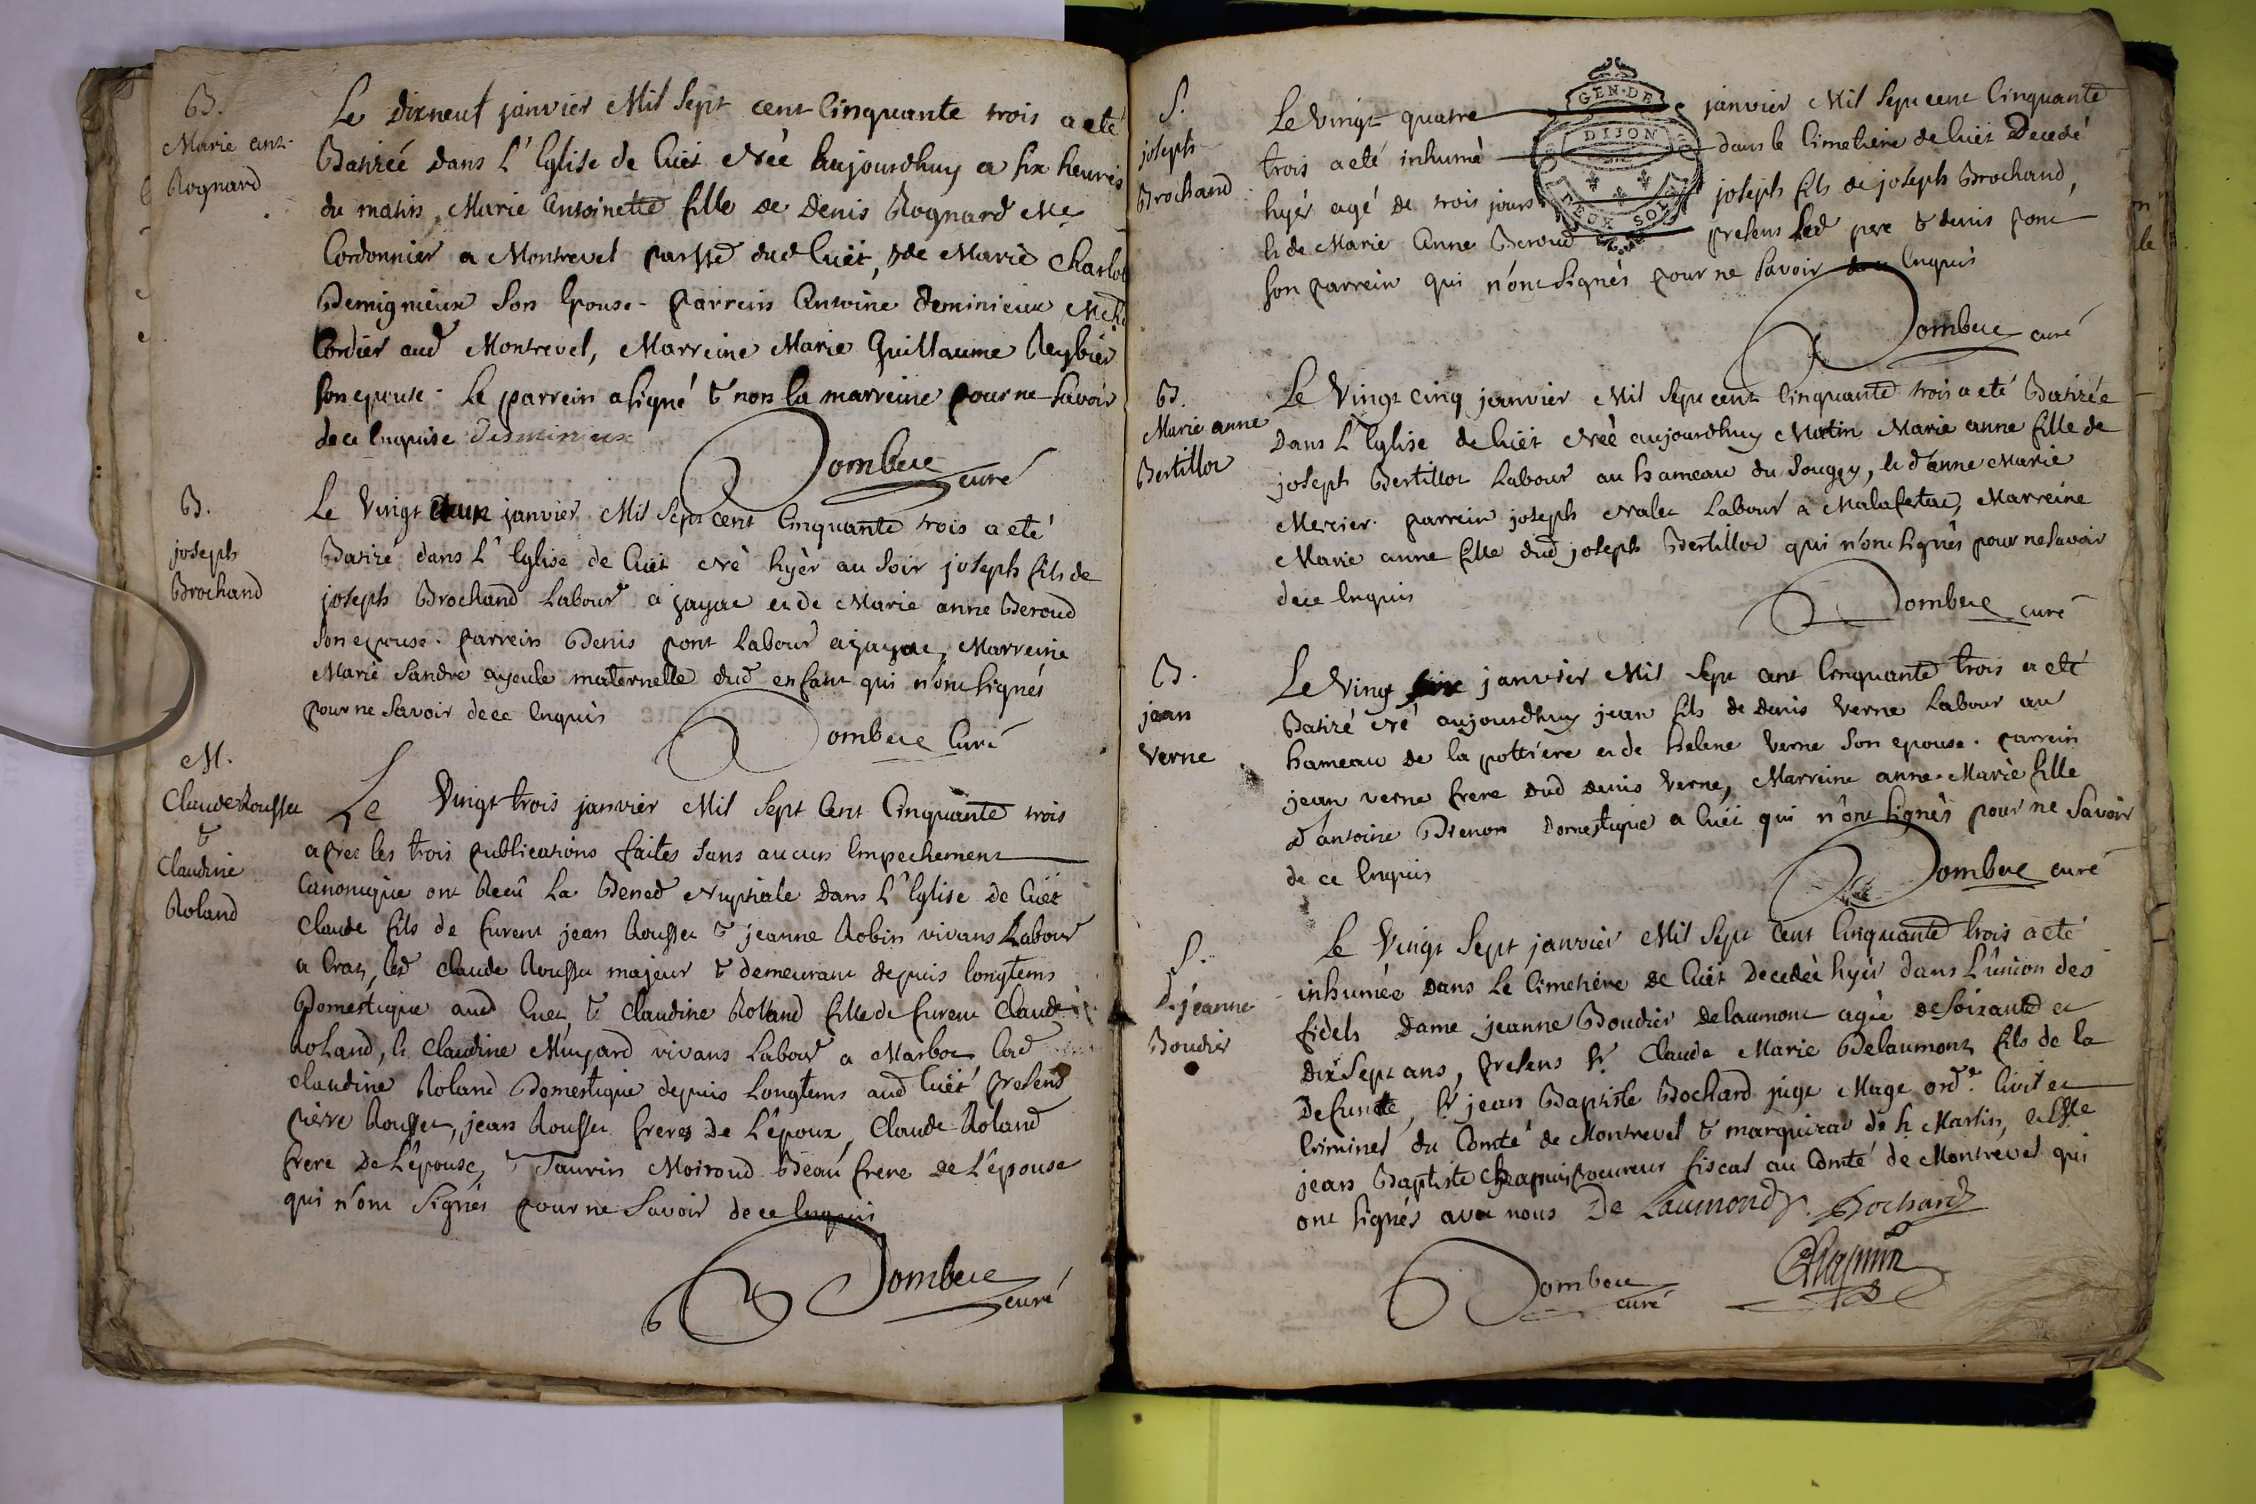 B.
Marie ant.
Rognard
Le dixneuf janvier Mil Sept cent Cinquante trois a eté
Batizéé dans L'Eglise de Cuët Néé Aujourdhuy a six heures
du matin, Marie Antoinette fille de Denis Rognard Me
Cordonnier a Montrevel parsse dud Cuët, & de Marie Charlot
Demignieux Son Epouse. Parrein Antoine deminieux
Cordier aud Montrevel, Marreine Marie Guillaume Reybier
son epouse. Le parrein a signé & non la marreine pour ne Savoir
de ce Enquise Desminieux
Dombeie curé
B.
joseph
Brochand
Le Vingt deux janvier Mil Sept cent Cinquante trois a eté
Batizé dans L'Eglise de Cuët Né hyèr au Soir joseph fils de
joseph Brochand Labour a jayac et de Marie anne Beroud
son epouse. parrein Denis pont Labour a jayac, Marreine
Marie Sandre ayeule maternelle dud enfant qui n'ont signés
pour ne Savoir de ce Enquis
Dombeie Curé
M.
Claude Rousset
&
Claudine
Roland
Le Vingt trois janvier Mil Sept Cent Cinquante trois
aprez les trois publications faites Sans aucun Empechement
Canonique ont Receû La Bened Nuptiale Dans L'Eglise de Cuët
Claude fils de furent jean Rousset & jeanne Robin vivans Labour
a Craz, led Claude Rousset majeur & demeurant depuis longtems
Domestique aud Cuet, & Claudine Rolland fille de furent Claude
Roland, & Claudine vivans Labour a Marboz Lad
Claudine Roland Domestique depuis Longtems aud Cuët presens
Pierre Rousset, jean Rousset freres De L'époux, Claude Roland
frere De L'épouse, & Taurin Moiroud Beau frere de L'épouse
qui n'ont Signés pour ne Savoir de ce Enquis
Dombeie
curé
S.
joseph
Brochand
GEN. DE
DIJON
DEUX SOLS
Le Vingt quatre janvier Mil Sept cent Cinquante
trois a eté inhumé dans le Cimetiere de Cuët Decedé
hyér agé de trois jours joseph fils de joseph Brochand,
& de Marie Anne Beroud presens Led pere & denis pont
son parrein qui n'ont signés pour ne Savoir de ce Enquis
Dombeie curé
B.
Marie anne
Bertillot
Le Vingt cinq janvier Mil Sept cent Cinquante trois a eté Batizée
Dans L'Eglise de Cuët Néé aujourdhuy Matin Marie anne fille de
joseph Bertillot Labour au hameau du Sougey, & d'anne Marie
Mezier. parrein joseph Nalet Labour a Malafretaz, Marreine
Marie anne fille dud joseph Bertillot qui n'ont signés pour ne Savoir
de ce Enquis
Dombeie curé
B.
jean
Verne
Le Vingt six janvier Mil Sept cent Cinquante trois a eté
Batizé Né aujourdhuy jean fils de Denis Verne Labour au
hameau de la pottiere et de helene Verne Son epouse. parrein
jean Verne frere dud Denis Verne, Marreine anne Marie fille
d'antoine Brenon Domestique a Cuët qui n'ont signés pour ne Savoir
de ce Enquis
Dombeie curé
S.
D. jeanne
Boudier
Le Vingt Sept janvier Mil Sept Cent Cinquante trois a eté
inhumée Dans Le Cimetiére de Cuët Decedéé hyér dans L'union des
fidels Dame jeanne Boudier Delaumont agée de Soixante et
Dix Sept ans, presens Sr. Claude Marie Delaumont fils de la
Defuncte, Sr jean Baptiste Bochard juge Mage ordre. Civil et
Criminel du Comté de Montrevel & marquizat de St Martin, &
jean Baptiste Chapuis procureur fiscal au Comté de Montrevel qui
ont signés avec nous De Laumond. Bochard
Dombeie
curé